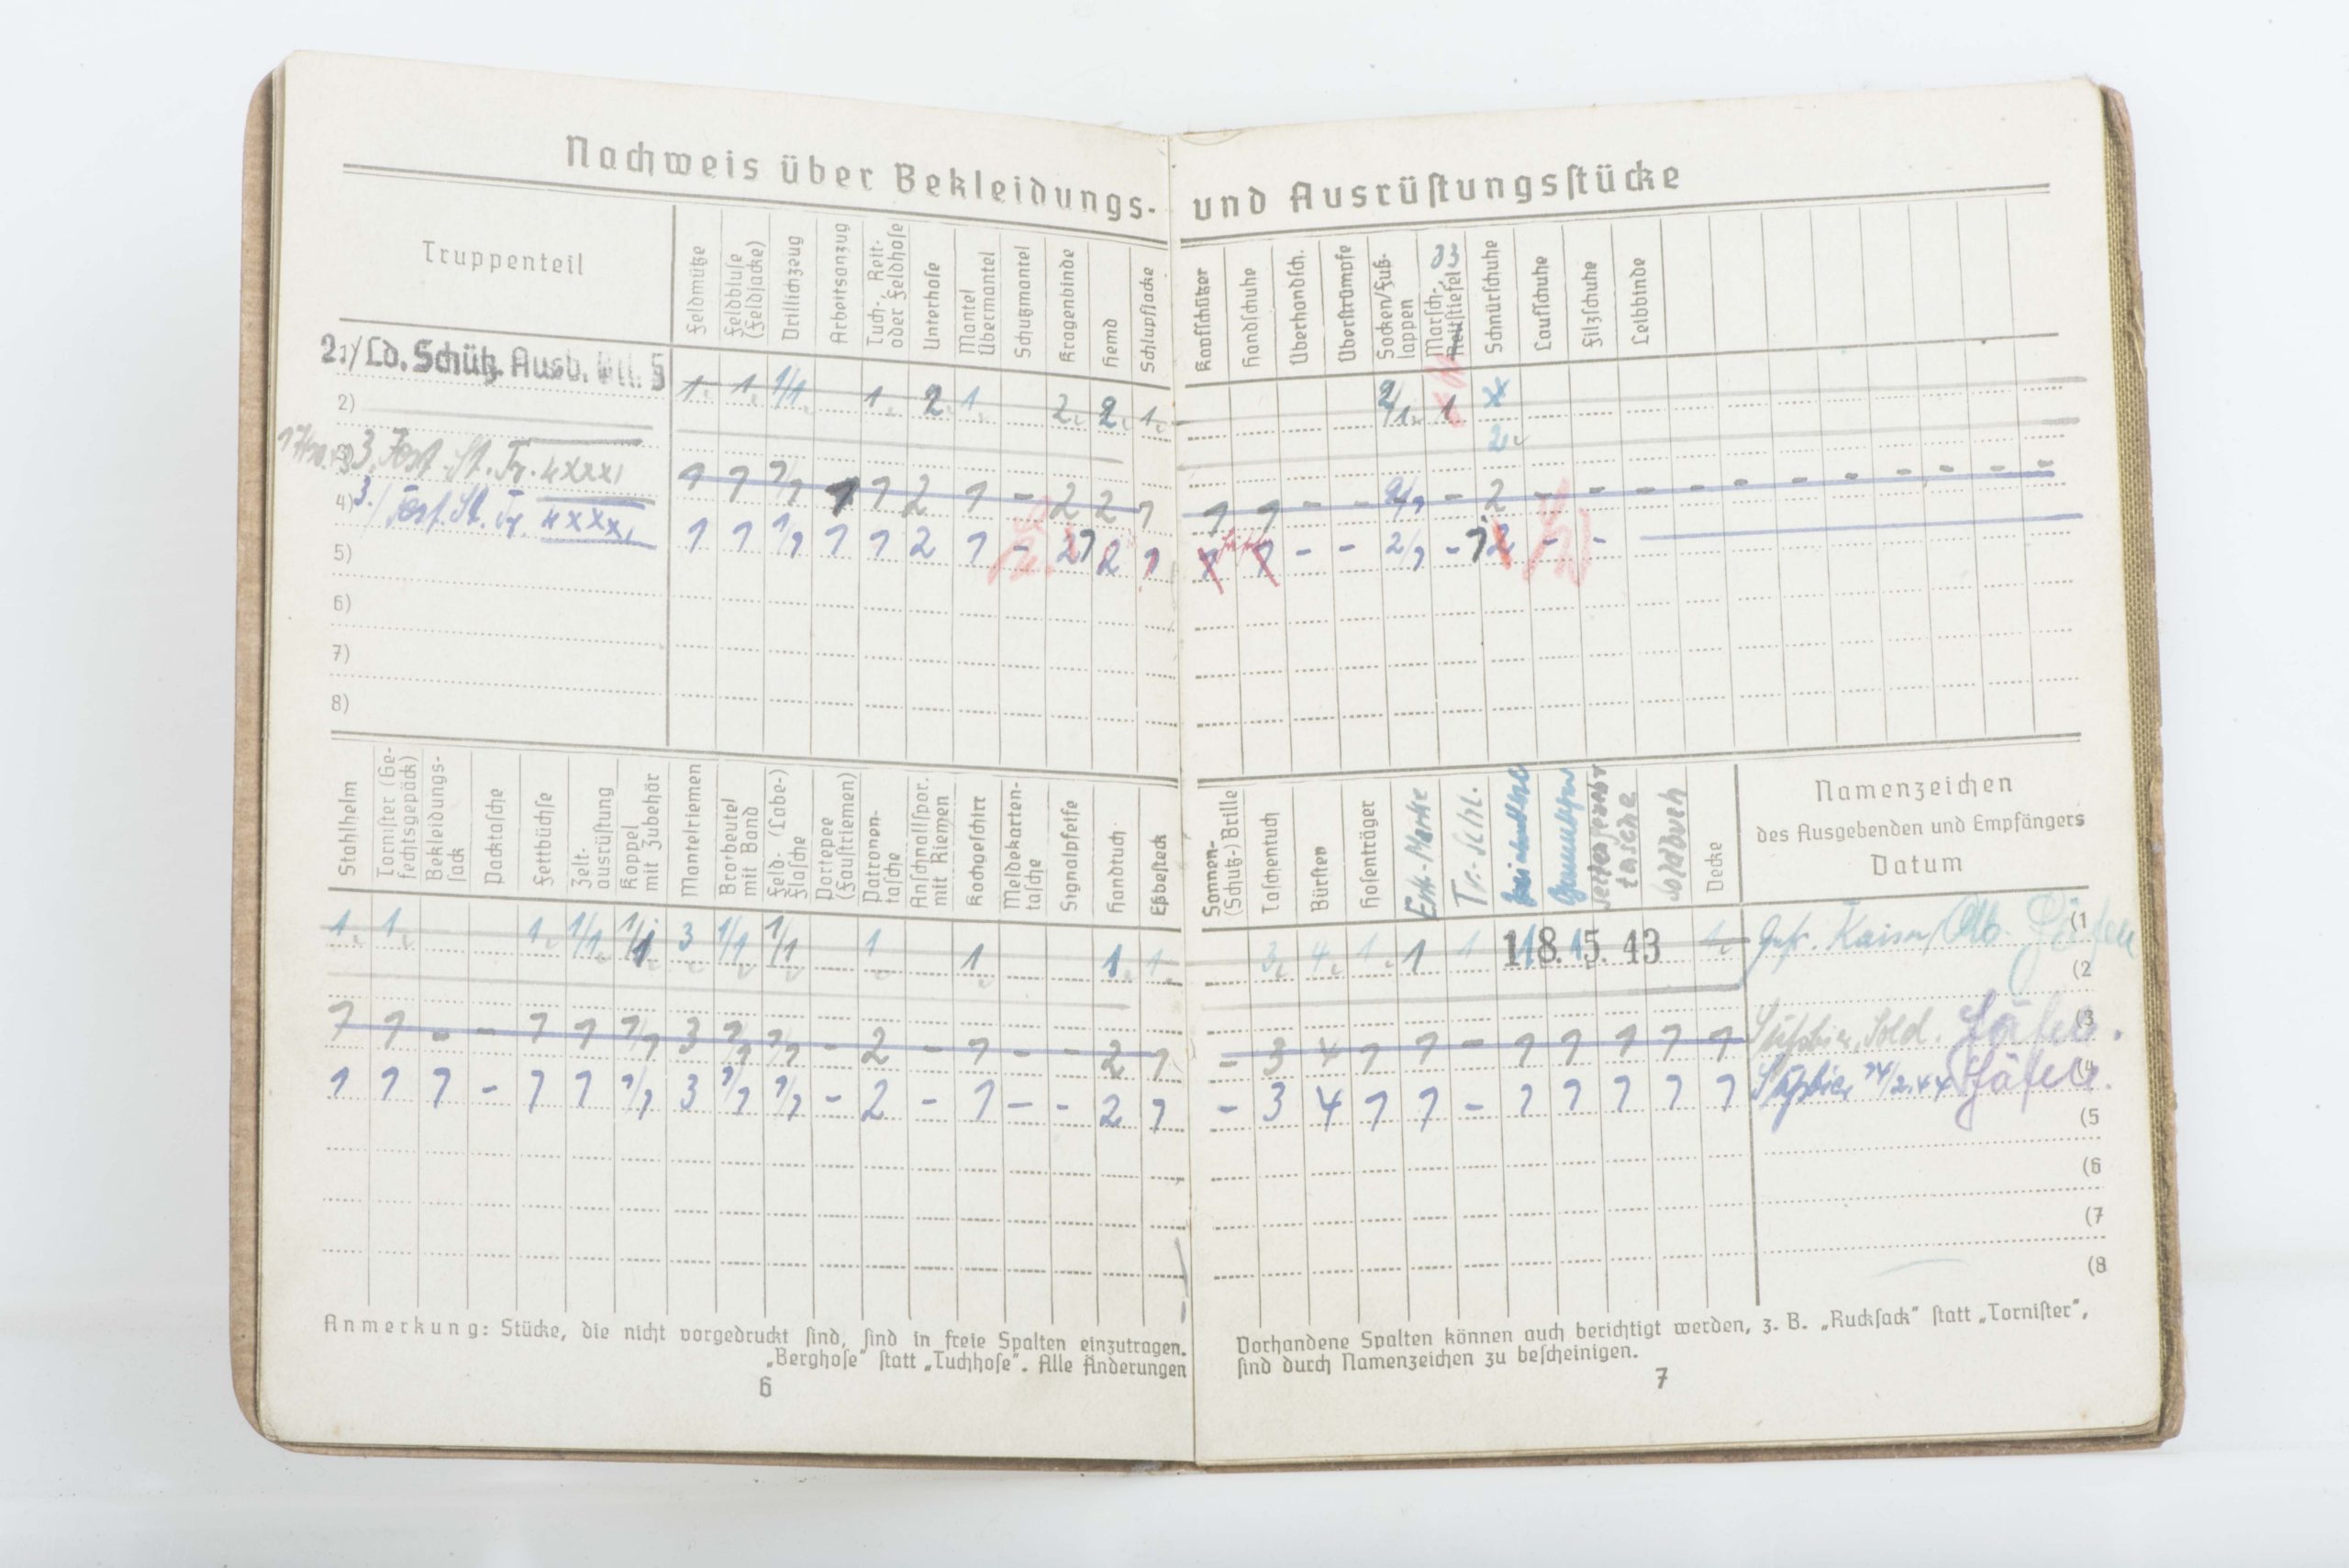 Nachweis über Bekleidungs- und Ausrüstungsstücke
Truppenteil
Feldmütze
Feldbluse (Feldjacke)
Drillichzeug
Arbeitsanzug
Tuch-, Reit- oder Feldhose
Unterhose
Mantel Übermantel
Schutzmantel
Kragenbinde
Hemd
Schlupfjacke
Kopfschützer
Handschuhe
Überhandsch.
Überstrümpfe
Socken/Fuß- lappen
Marsch-, Reitstiefel
Schnürschuhe
Laufschuhe
Filzschuhe
Leibbinde
2./Ld. Schütz. Ausb. 5
1 1 1/1 1 2 1 2 2 1 2/1 1
2)
2
3. Fest. St. Tr. XXXI
1 1 1/1 1 1 2 1 - 2 2 1 1 1 - - 2/1 - 2 - - - - - - - - - - -
4) 3./Fest. St. Tr. XXXI
1 1 1/1 1 1 2 1 - 2 1 - - 2/1 - - -
5)
6)
7)
8)
Stahlhelm
Tornister (Ge- fechtsgepäck)
Bekleidungs- sack
Packtasche
Fettbüchse
Zelt- ausrüstung
Koppel mit Zubehör
Mantelriemen
Brotbeutel mit Band
Feld- (Labe-) flasche
Portepee (Faustriemen)
Patronen- tasche
Anschnallspor. mit Riemen
Kochgeschirr
Meldekarten- tasche
Signalpfeife
Handtuch
Eßbesteck
Sonnen- (Schutz-) Brille
Taschentuch
Bürsten
Hosenträger
Erk.-Marke
Tr.-Schl.
tasche
Soldbuch
Decke
Namenzeichen
des Ausgebenden und Empfängers
Datum
1 1 1 1/1 1/1 3 1/1 1/1 1 1 1 1 3 4 1 1 1 18. 5. 43 1 Gefr. Kaiser (1
(2
1 1 - - 1 1 1/1 3 1/1 1/1 - 2 - 1 - - 2 1 - 3 4 1 1 - 1 1 1 1 1 Sold. (3
1 1 1 - 1 1 1/1 3 1/1 1/1 - 2 - 1 - - 2 1 - 3 4 1 1 - 1 1 1 1 1 (4
(5
(6
(7
(8
Anmerkung: Stücke, die nicht vorgedruckt sind, sind in freie Spalten einzutragen.
„Berghose" statt „Tuchhose". Alle Änderungen
6
Vorhandene Spalten können auch berichtigt werden, z. B. „Rucksack" statt „Tornister",
sind durch Namenzeichen zu bescheinigen.
7